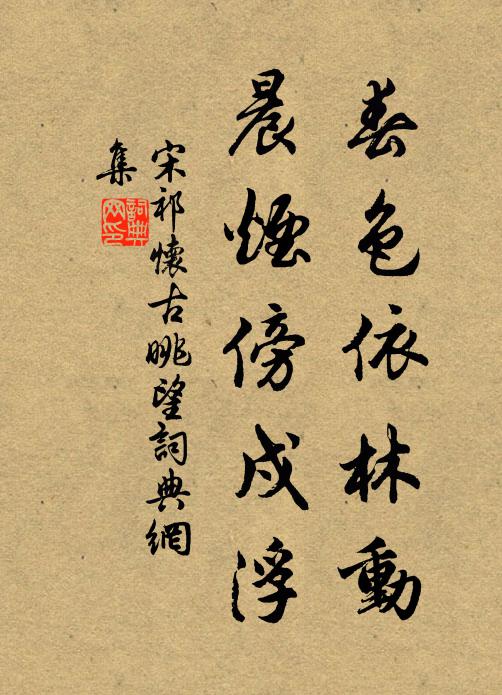 春色依林動
晨煙傍戍浮
宋祁懷古眺望詞典網
集
詞典網印